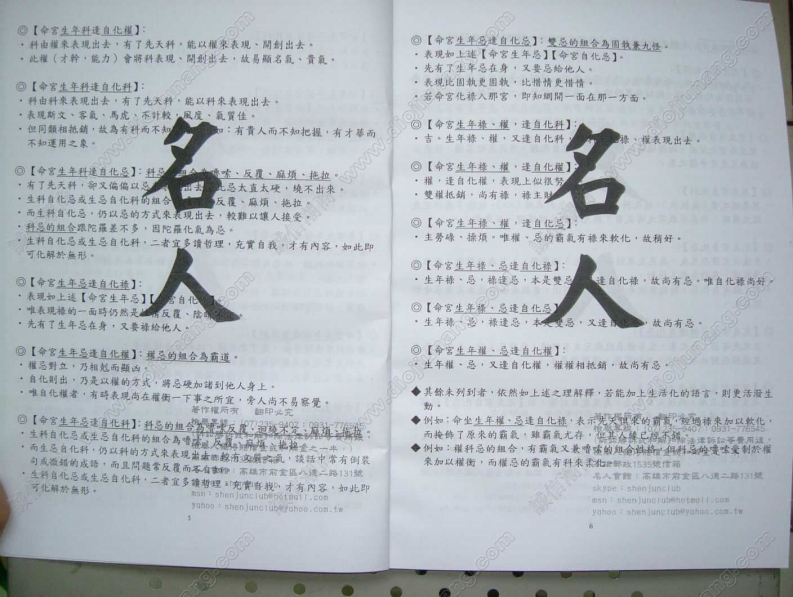 ◎【命宮生年科逢自化權】：
・科由權來表現出去，有了先天科，能以權來表現、開創出去。
・此權（才幹，能力）會將科表現、開創出去，故易顯名氣、貴氣。
◎【命宮生年科逢自化科】：
・科由科來表現出去，有了先天科，能以科來表現出去。
・表現斯文、客氣，馬虎、不計較，風度、氣質佳。
・但同類相抵銷，故為有科而不知 如：有貴人而不知把握，有才華而
不知運用之象。
◎【命宮生年科逢自化忌】：科忌 嗜嗦、反覆、麻煩、拖拉。
・有了先天科，卻又偏偏以忌 出去 化忌太直太硬，繞不出來。
・生科自化忌或生忌自化科的組合為 、反覆、麻煩、拖拉。
・而生科自化忌，仍以忌的方式來表現出去，較難以讓人接受。
・科忌的組合跟陀羅差不多，因陀羅化氣為忌。
・生科自化忌或生忌自化科，二者宜多讀哲理，充實自我，才有內容，如此即
可化解於無形。
◎【命宮生年忌逢自化祿】：
・表現如上述【命宮生年忌】【命宮自化 】。
・唯表現祿的一面時仍然是 情反覆、陰
・先有了生年忌在身，又要祿給他人。
◎【命宮生年忌逢自化權】：權忌的組合為霸道。
・權忌對立，乃相剋而顯凶。
・自化則出，乃是以權的方式，將忌硬加諸到他人身上。
・唯自化權者，有時表現尚在權衡一下事之所宜，旁人尚不易察覺。
著作權所有 翻印必究
◎【命宮生年忌逢自化科】：科忌的組合為 反覆、 、麻煩、拖拉。
・生科自化忌或生忌自化科的組合為嗜嗦、反覆、麻煩、拖拉。
・而生忌自化科，仍以科的方式來表現出去， 較有文藝之氣，談話中常有倒裝
句或微禊的成語，而且問題常反覆而不
・生科自化忌或生忌自化科，二者宜多讀哲理，充實自我，才有內容，如此即
可化解於無形。
msn：shenjunclub@hotmail.com
yahoo：shenjunclub@yahoo.com.tw
5
名
人
◎【命宮生年忌逢自化忌】：雙忌的組合為固執兼九怪。
・表現如上述【命宮生年忌】【命宮自化忌】。
・先有了生年忌在身，又要忌給他人。
・表現比固執更固執，比惜情更惜情。
・若命宮化祿入那宮，即知網開一面在那一方面。
◎【命宮生年祿、權，逢自化科】：
・吉。生年祿、權，又逢自化科， 祿、權表現出去。
◎【命宮生年祿、權，逢自化權】：
・權，逢自化權，表現上似很努
・雙權抵銷，尚有祿，祿主財
◎【命宮生年祿、權，逢自化忌】：
・主勞祿、操煩。唯權、忌的霸氣有祿來軟化，故稍好。
◎【命宮生年祿、忌逢自化祿】：
・生年祿、忌，祿逢忌，本是雙忌 逢自化祿，故尚有忌，唯自化祿尚好。
◎【命宮生年祿、忌逢自化忌】：
・生年祿、忌，祿逢忌，本是雙忌，又逢自化忌，故尚有忌。
◎【命宮生年權、忌逢自化權】：
・生年權、忌，又逢自化權，權權相抵銷，故尚有忌。
◆其餘未列到者，依然如上述之理解釋，若能加上生活化的語言，則更活發生
動。
◆例如：命坐生年權、忌逢自化祿，表示先天俱來的霸氣，經過祿來加以軟化，
而掩飾了原來的霸氣，雖霸氣尤存，但以祿
◆例如：權科忌的組合，有霸氣又兼嗜嗦的組合性格，但科忌的嗜嗦受制於權
來加以權衡，而權忌的霸氣有科來柔化。
名人會館：高雄市前金區八德二路131號
skype：shenjunclub
msn：shenjunclub@hotmail.com
yahoo：shenjunclub@yahoo.com.tw
6
名
人